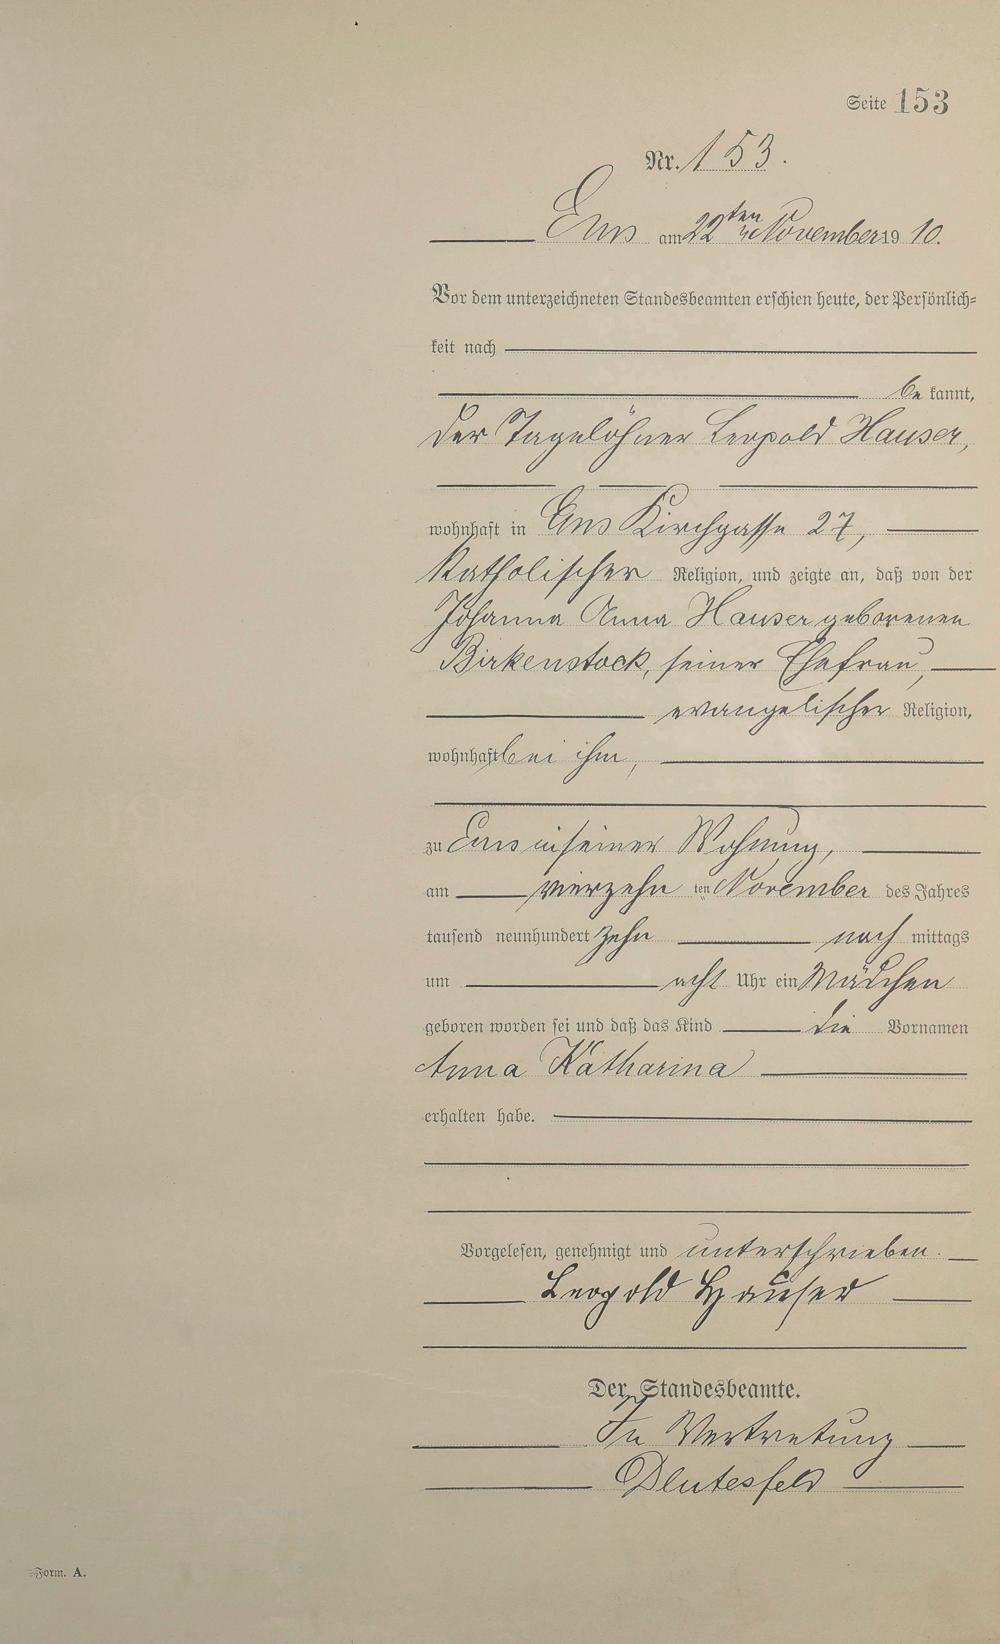 Seite 153
Nr. 153.
Ems am 22ten November 1910.
Vor dem unterzeichneten Standesbeamten erschien heute, der Persönlich=
keit nach
bekannt,
der Tagelöhner Leopold Hauser,
wohnhaft in Ems Kirchgasse 27,
katholischer Religion, und zeigte an, daß von der
Johanna Anna Hauser geborenen
Birkenstock, seiner Ehefrau,
evangelischer Religion,
wohnhaft bei ihm,
zu Ems in seiner Wohnung,
am vierzehnten November des Jahres
tausend neunhundert zehn nachmittags
um acht Uhr ein Mädchen
geboren worden sei und daß das Kind die Vornamen
Anna Katharina
erhalten habe.
Vorgelesen, genehmigt und unterschrieben.
Leopold Hauser
Der Standesbeamte.
In Vertretung
Form. A.